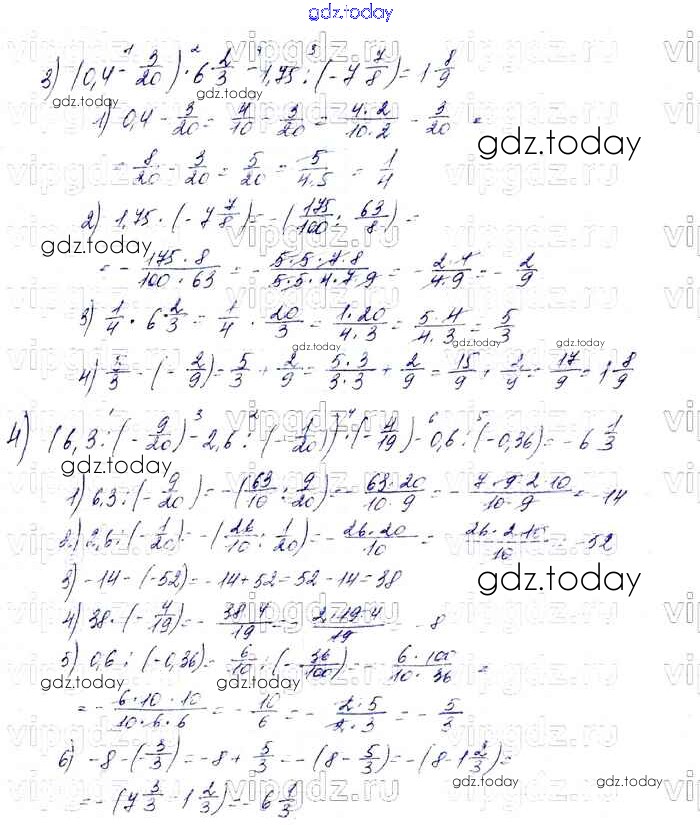 gdz.today
3) (0,4 - 3/20) · 6 2/3 - 1,75 : (-7 7/8) = 1 8/9
1) 0,4 - 3/20 = 4/10 - 3/20 = 4·2/10·2 - 3/20 =
= 8/20 - 3/20 = 5/20 = 5/4·5 = 1/4
gdz.today
2) 1,75 · (-7 7/8) = -(175/100 : 63/8) =
gdz.today
= - 175·8/100·63 = - 5·5·7·8/5·5·4·7·9 = - 2·4/4·9 = - 2/9
3) 1/4 · 6 2/3 = 1/4 · 20/3 = 1·20/4·3 = 5·4/4·3 = 5/3
gdz.today
4) 5/3 - (-2/9) = 5/3 + 2/9 = 5·3/3·3 + 2/9 = 15/9 + 2/9 = 17/9 = 1 8/9
4) (6,3 : (-9/20) - 2,6 : (-1/20)) · (-4/19) - 0,6 : (-0,36) = -6 1/3
1) 6,3 : (-9/20) = -(63/10 : 9/20) = - 63·20/10·9 = - 7·9·2·10/10·9 = -14
2) 2,6 : (-1/20) = -(26/10 : 1/20) = - 26·20/10 = - 26·2·10/10 = -52
3) -14 - (-52) = -14 + 52 = 52 - 14 = 38
gdz.today
4) 38 · (-4/19) = - 38·4/19 = - 2·19·4/19 = -8
5) 0,6 : (-0,36) = 6/10 : (-36/100) = - 6·100/10·36 =
gdz.today
= - 6·10·10/10·6·6 = - 10/6 = - 2·5/2·3 = - 5/3
6) -8 - (-5/3) = -8 + 5/3 = -(8 - 5/3) = -(8 - 1 2/3) =
gdz.today
= -(7 3/3 - 1 2/3) = -6 1/3
vipgdz.ru